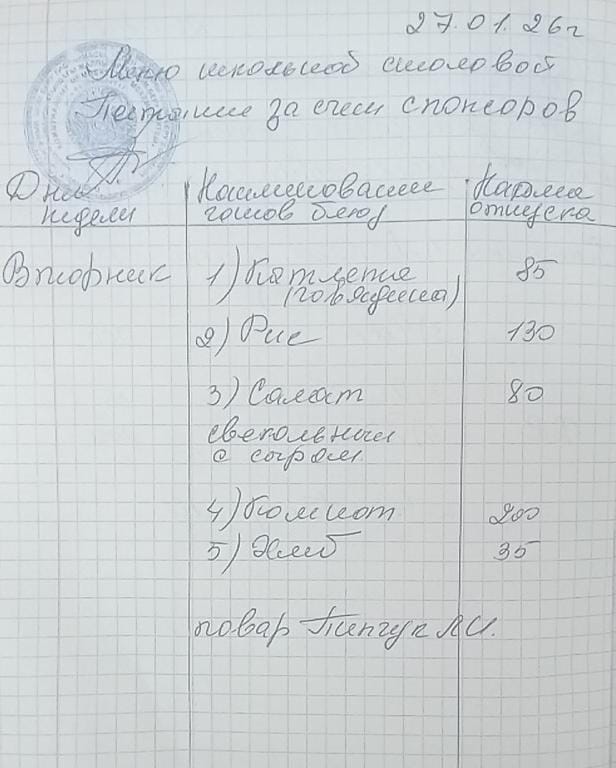 27.01.26г
Меню школьной столовой
Питание за счет спонсоров
Дни
недели
Наименование
готов блюд
Норма
отпуска
Вторник
1) Котлета 85
(говядина)
2) Рис 130
3) Салат 80
свекольный
с сыром
4) Компот 200
5) Хлеб 35
повар Пинчук Л.И.